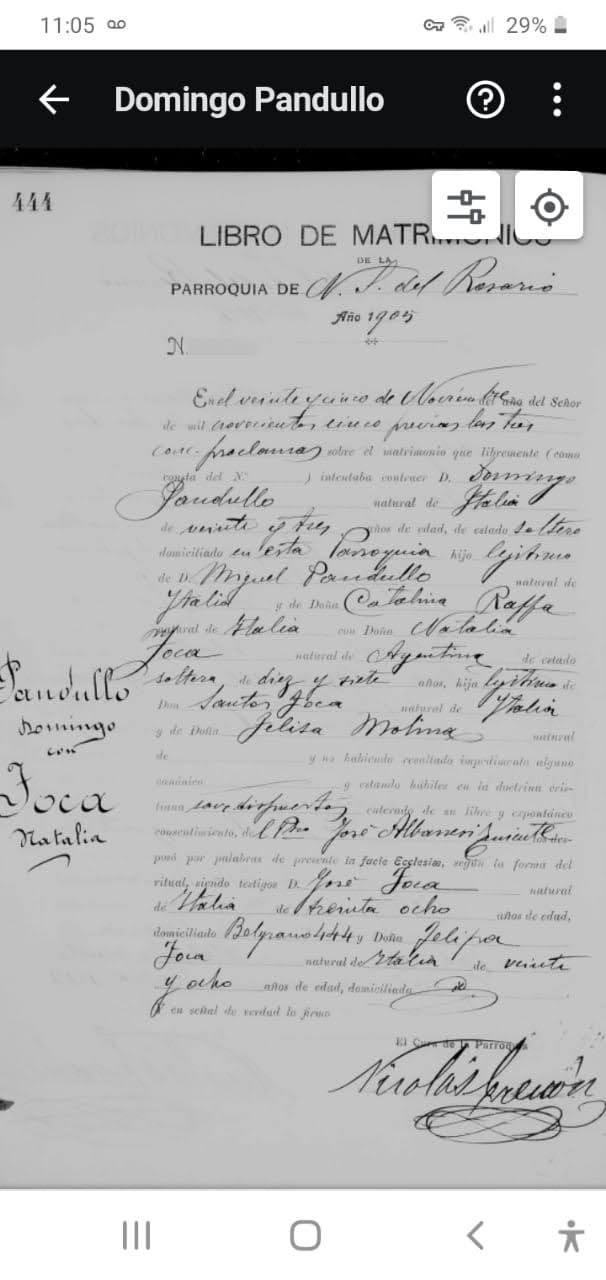 11:05
29%
Domingo Pandullo
444
LIBRO DE MATRIMONIOS
DE LA
PARROQUIA DE N. S. del Rosario
Año 1905
N.
En el veinte y cinco de Noviembre del año del Señor
de mil novecientos cinco previas las tres
conc. proclamas sobre el matrimonio que libremente (como
consta del N° ) intentaba contraer D. Domingo
Pandullo natural de Italia
de veinte y tres años de edad, de estado soltero
domiciliado en esta Parroquia hijo lejitimo
de D. Miguel Pandullo natural de
Italia y de Doña Catalina Raffa
natural de Italia con Doña Natalia
Foca natural de Argentina de estado
soltera de diez y siete años, hija lejitima de
Don Santos Foca natural de Italia
y de Doña Felisa Molina natural
de y no habiendo resultado impedimento alguno
canónico y estando hábiles en la doctrina cris-
tiana enterado de su libre y expontáneo
consentimiento, el Pbro José Teniente los des-
posó por palabras de presente in facie Ecclesiae, según la forma del
ritual, siendo testigos D. José Foca natural
de Italia de treinta ocho años de edad,
domiciliado Belgrano 444 y Doña Felipa
Foca natural de Italia de veinte
y ocho años de edad, domiciliada id
Y en señal de verdad lo firmo
El Cura de la Parroquia
Nicolás
Pandullo
Domingo
con
Foca
Natalia